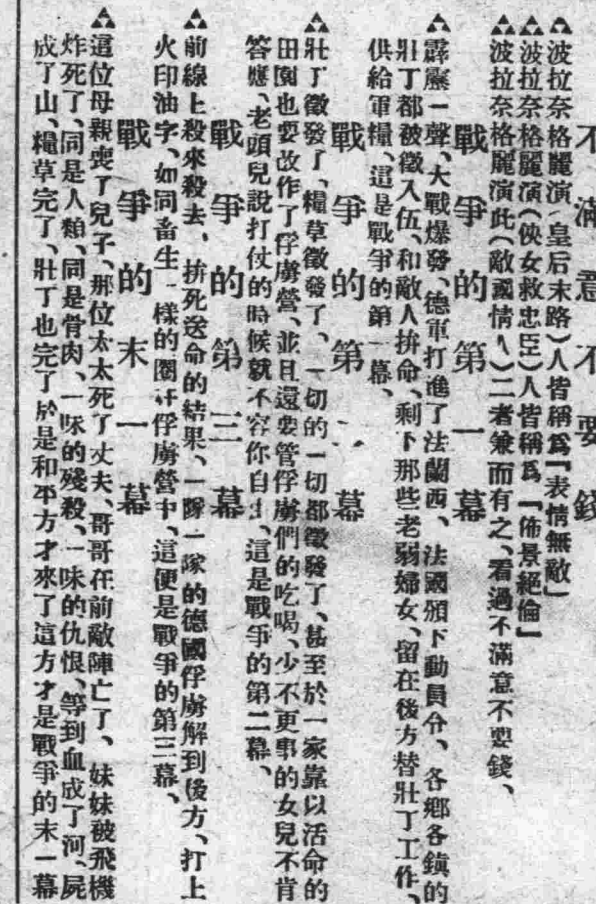 不滿意不要錢
波拉奈格麗演(皇后末路)人皆稱爲「表情無敵」
波拉奈格麗演(俠女救忠臣)人皆稱爲「佈景絕倫」
波拉奈格麗演此(敵國情人)二者兼而有之、看過不滿意不要錢、
戰爭的第一幕
霹靂一聲、大戰爆發、德軍打進了法蘭西、法國頒下動員令、各鄉各鎮的
壯丁都被徵入伍、和敵人拚命、剩下那些老弱婦女、留在後方替壯丁工作、
供給軍糧、這是戰爭的第一幕、
戰爭的第二幕
壯丁徵發了、糧草徵發了、一切的一切都徵發了、甚至於一家靠以活命的
田園也要改作了俘虜營、並且還要管俘虜們的吃喝、少不更事的女兒不肯
答應、老頭兒說打仗的時候就不容你自主、這是戰爭的第二幕、
戰爭的第三幕
前線上殺來殺去、拚死送命的結果、一隊一隊的德國俘虜解到後方、打上
火印油字、如同畜生一樣的圈在俘虜營中、這便是戰爭的第三幕、
戰爭的末一幕
這位母親喪了兒子、那位太太死了丈夫、哥哥在前敵陣亡了、妹妹被飛機
炸死了、同是人類、同是骨肉、一味的殘殺、一味的仇恨、等到血成了河、屍
成了山、糧草完了、壯丁也完了於是和平方才來了這方才是戰爭的末一幕